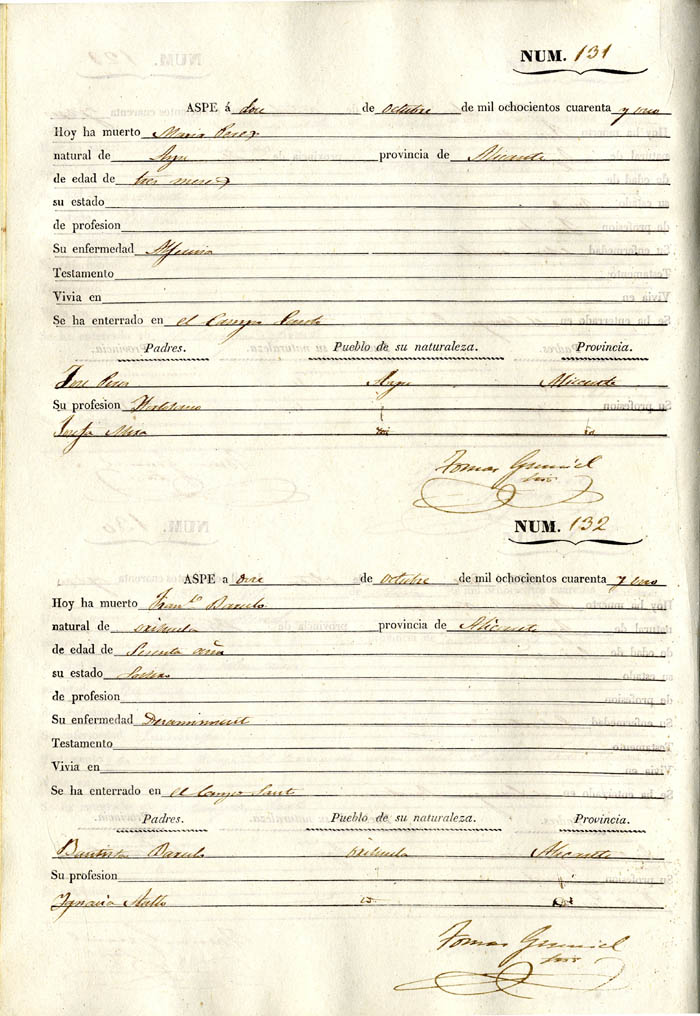 NUM. 131
ASPE á doce de octubre de mil ochocientos cuarenta y uno
Hoy ha muerto Maria Perez
natural de Aspe provincia de Alicante
de edad de tres meses
su estado
de profesion
Su enfermedad Alfereria
Testamento
Vivia en
Se ha enterrado en el Campo Santo
Padres. Pueblo de su naturaleza. Provincia.
Jose Perez Aspe Alicante
Su profesion
Josefa Mira id id
Tomas
NUM. 132
ASPE a doce de octubre de mil ochocientos cuarenta y uno
Hoy ha muerto Fran.ca
natural de orihuela provincia de Alicante
de edad de Sesenta años
su estado
de profesion
Su enfermedad
Testamento
Vivia en
Se ha enterrado en el Campo Santo
Padres. Pueblo de su naturaleza. Provincia.
Bautista orihuela Alicante
Su profesion
Ignacia id id
Tomas